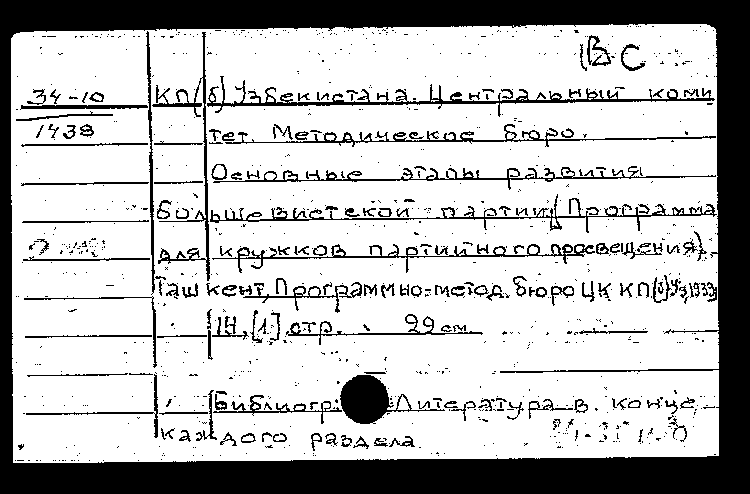 ВС
34-10 КП(б) Узбекистана. Центральный коми
1438 тет. Методическое бюро.
Основные этапы развития
большевистской партии (Программа
для кружков партийного просвещения).
Ташкент, Программно-метод. бюро ЦК КП(б)Уз, 1933
14, [1] стр. 22 см.
Библиогр. Литература в конце
каждого раздела